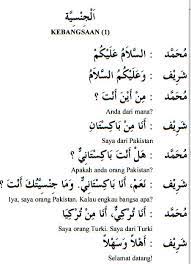 اَلْجِنْسِيَّة
KEBANGSAAN (1)
مُحَمَّد : السَّلَامُ عَلَيْكُمْ
شَرِيْف : وَعَلَيْكُمُ السَّلَامُ
مُحَمَّد : مِنْ أَيْنَ أَنْتَ ؟
Anda dari mana?
شَرِيْف : أَنَا مِنْ بَاكِسْتَانِ
Saya dari Pakistan
مُحَمَّد : هَلْ أَنْتَ بَاكِسْتَانِيٌّ ؟
Apakah anda orang Pakistan?
شَرِيْف : نَعَمْ، أَنَا بَاكِسْتَانِيٌّ. وَمَا جِنْسِيَّتُكَ أَنْتَ ؟
Iya, saya orang Pakistan. Kalau engkau bangsa apa?
مُحَمَّد : أَنَا تُرْكِيٌّ، أَنَا مِنْ تُرْكِيَا
Saya orang Turki. Saya dari Turki
شَرِيْف : أَهْلًا وَسَهْلًا
Selamat datang!